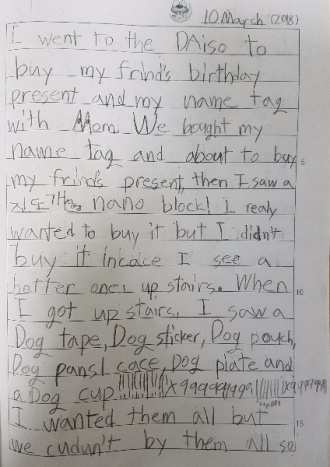 10 March (2018)
I went to the DAiso to
buy my frind's birthday
present and my name tag
with Mom. We bought my
name tag and about to buy
my frind's present, then I saw a
nano block! I realy
wanted to buy it but I didn't
buy it incace I see a
better ones up stairs. When
I got up stairs, I saw a
Dog tape, Dog sticker, Dog pouch,
Dog pansl cace, Dog plate and
a Dog cup
I wanted them all but
we cudun't by them all so